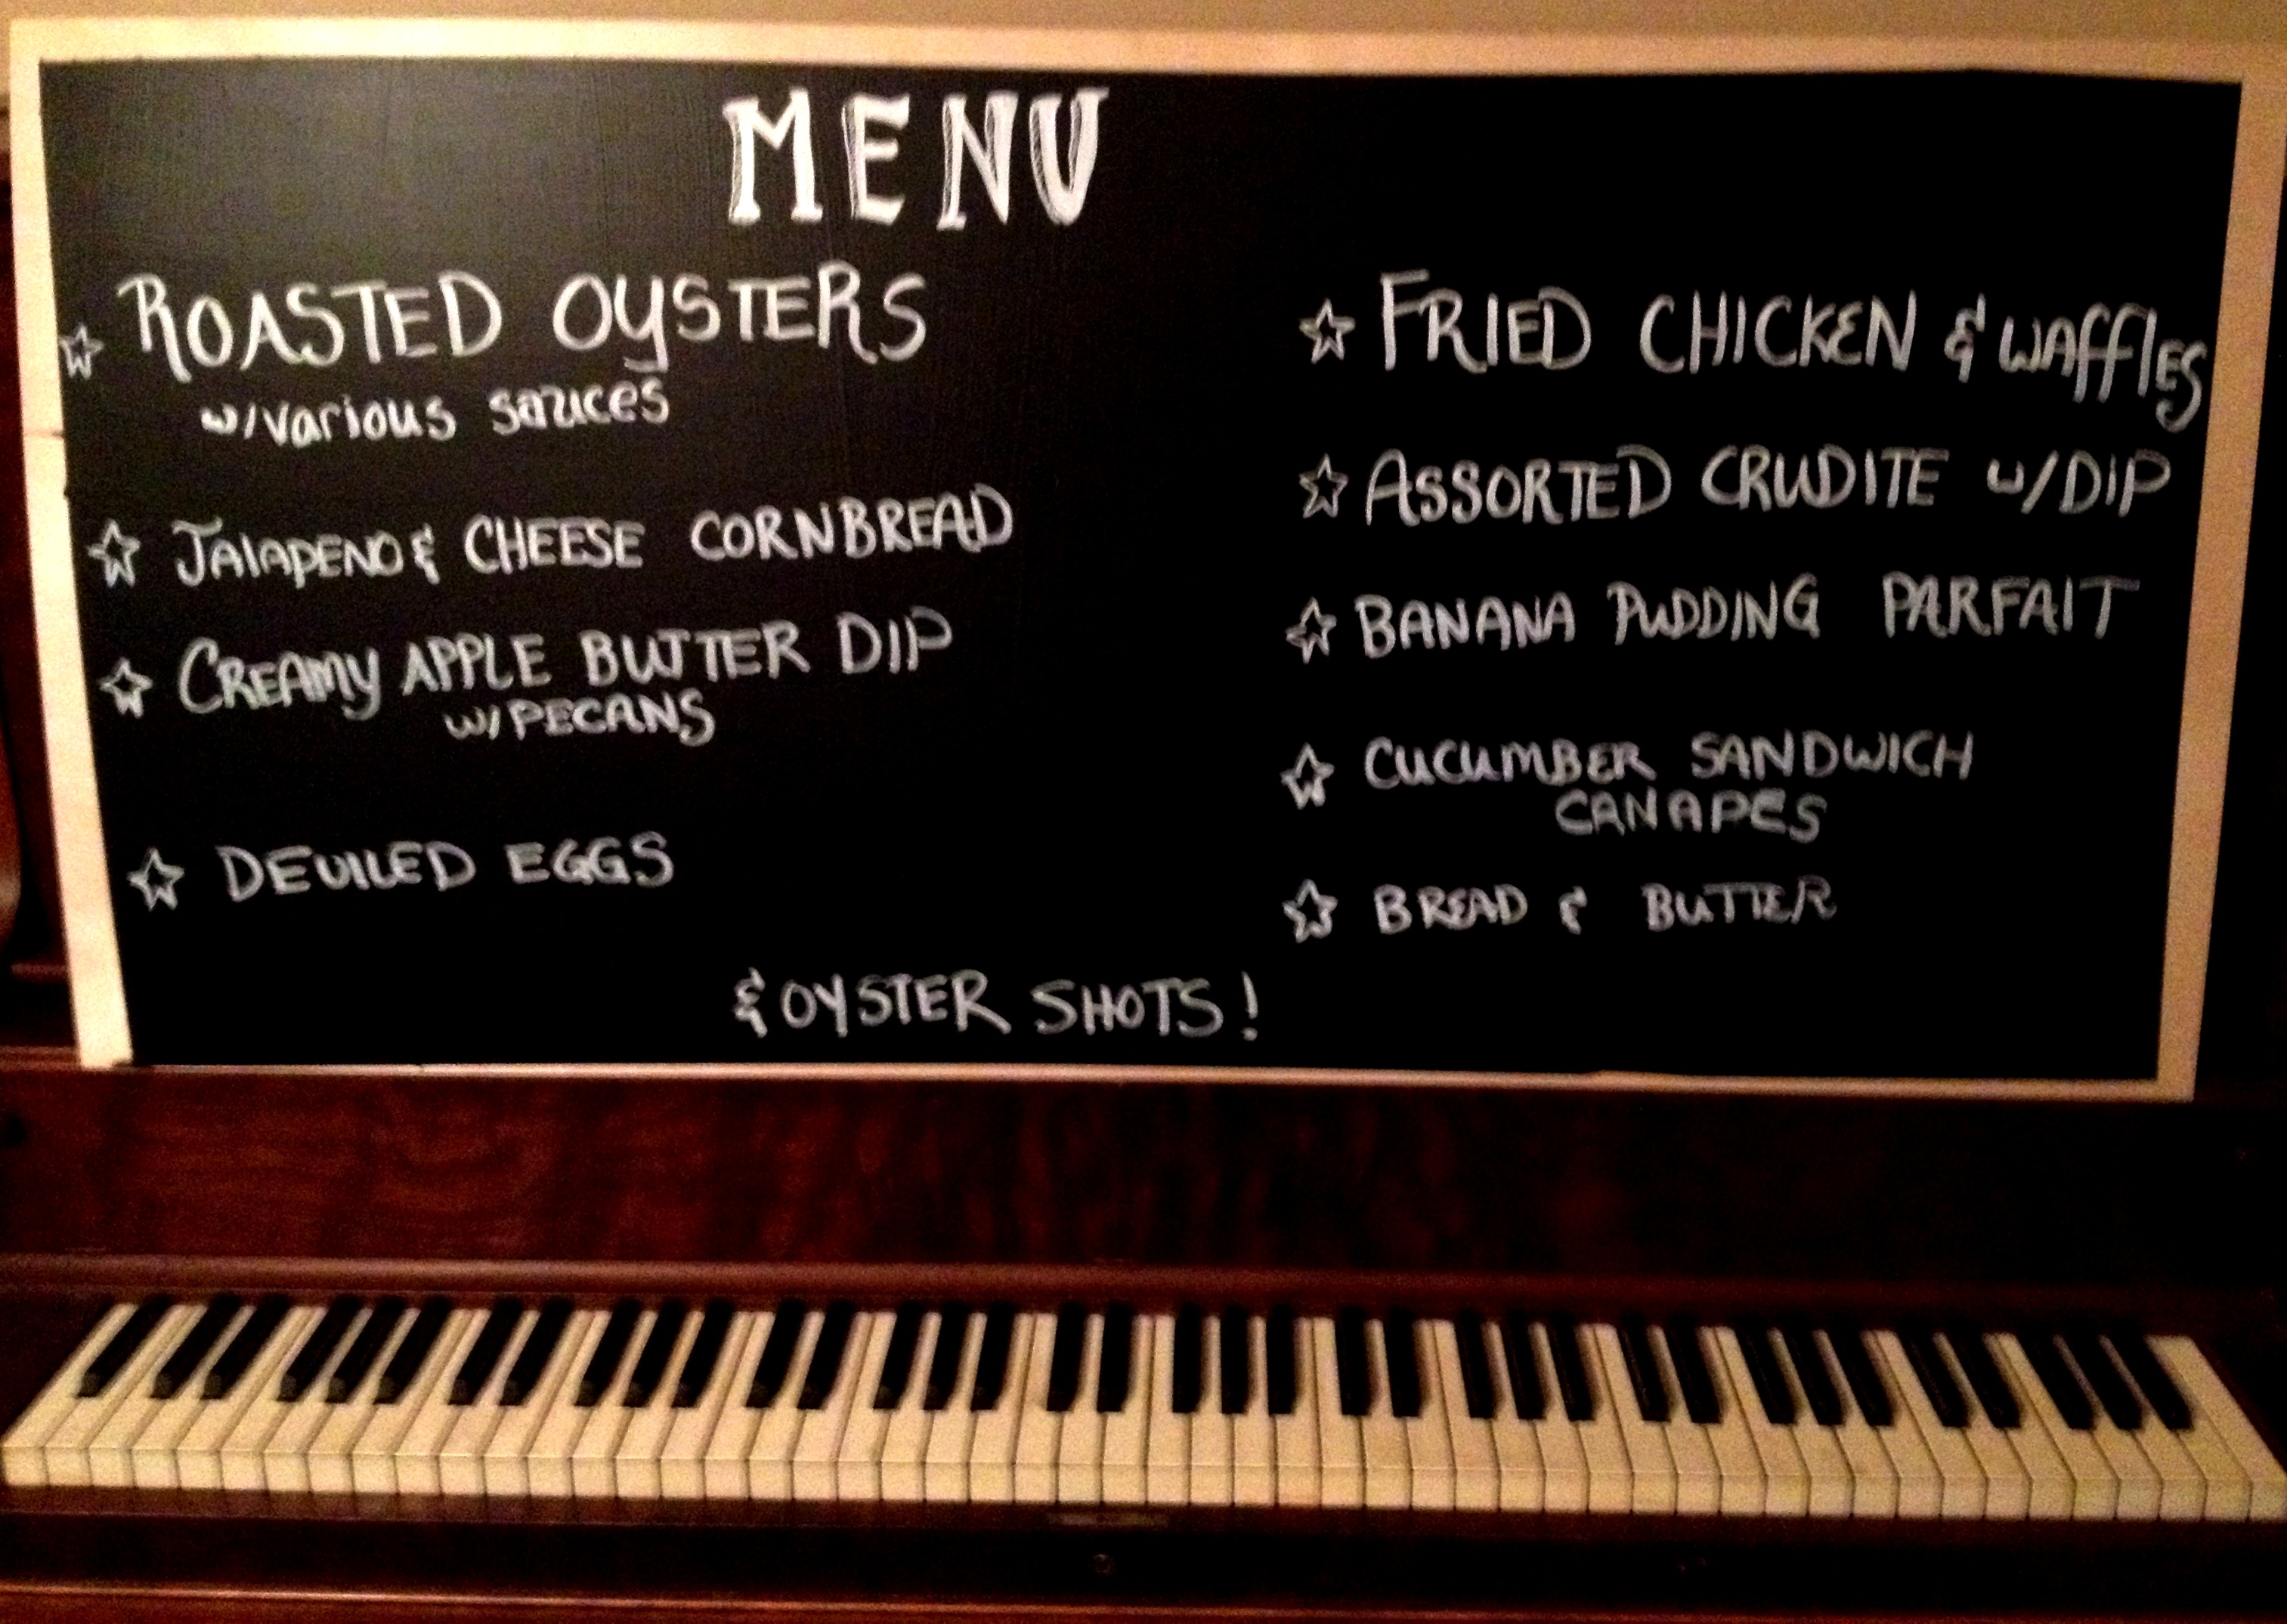 MENU
ROASTED OYSTERS
w/various sauces
JALAPENO & CHEESE CORNBREAD
CREAMY APPLE BUTTER DIP
w/PECANS
DEVILED EGGS
FRIED CHICKEN & WAffLES
ASSORTED CRUDITE w/DIP
BANANA PUDDING PARFAIT
CUCUMBER SANDWICH
CANAPES
BREAD & BUTTER
& OYSTER SHOTS!